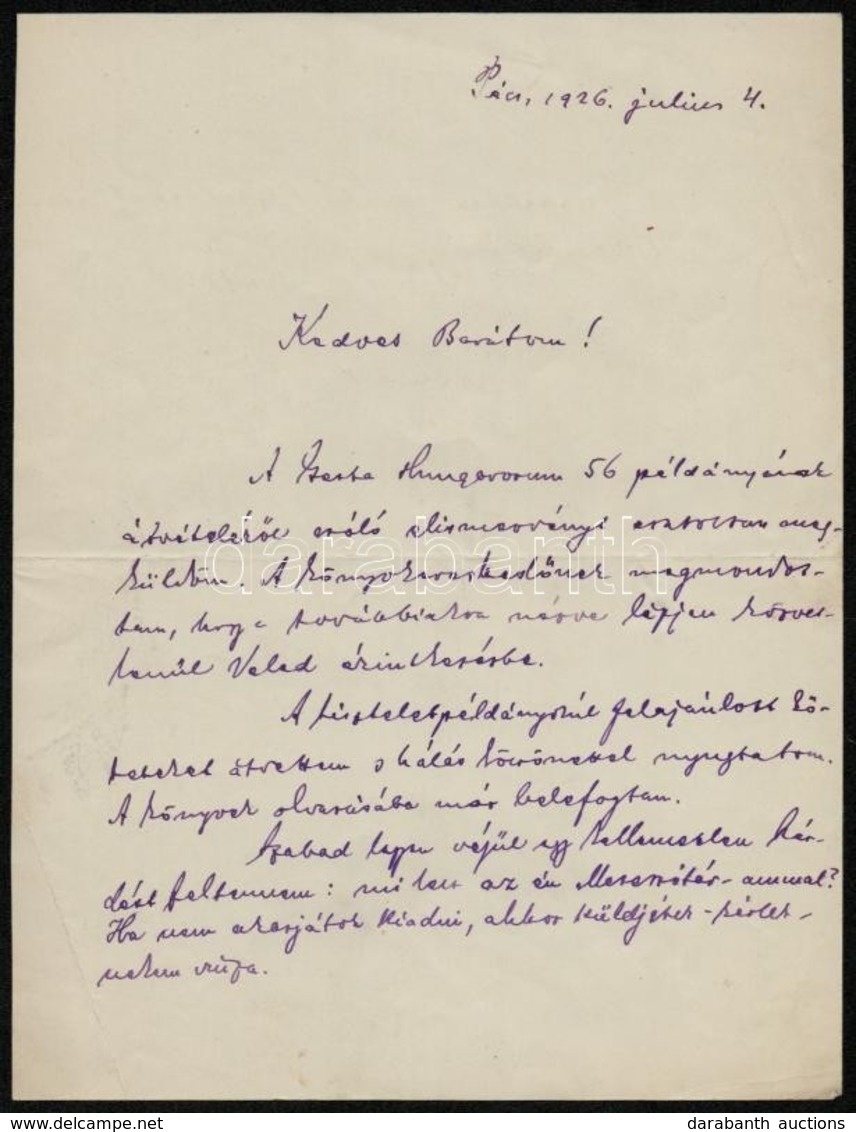 Pécs, 1926. julius 4.
Kedves Barátom!
A Gesta Hungarorum 56 példányának
átvételéről szóló elismervényt csatoltan meg-
küldöm. A könyvkereskedőnek megmondot-
tam, hogy a továbbiakra nézve lépjen közvet-
lenül Veled érintkezésbe.
A tiszteletpéldányokúl felajánlott kö-
teteket átvettem s hálás köszönettel nyugtatom.
A könyvek olvasásába már belefogtam.
Szabad legyen végül egy kellemetlen kér-
dést feltennem: mi lesz az én -ammal?
Ha nem akarjátok kiadni, akkor küldjétek - kérlek -
nekem vissza.
darabanth
delcampe.net
darabanth auctions